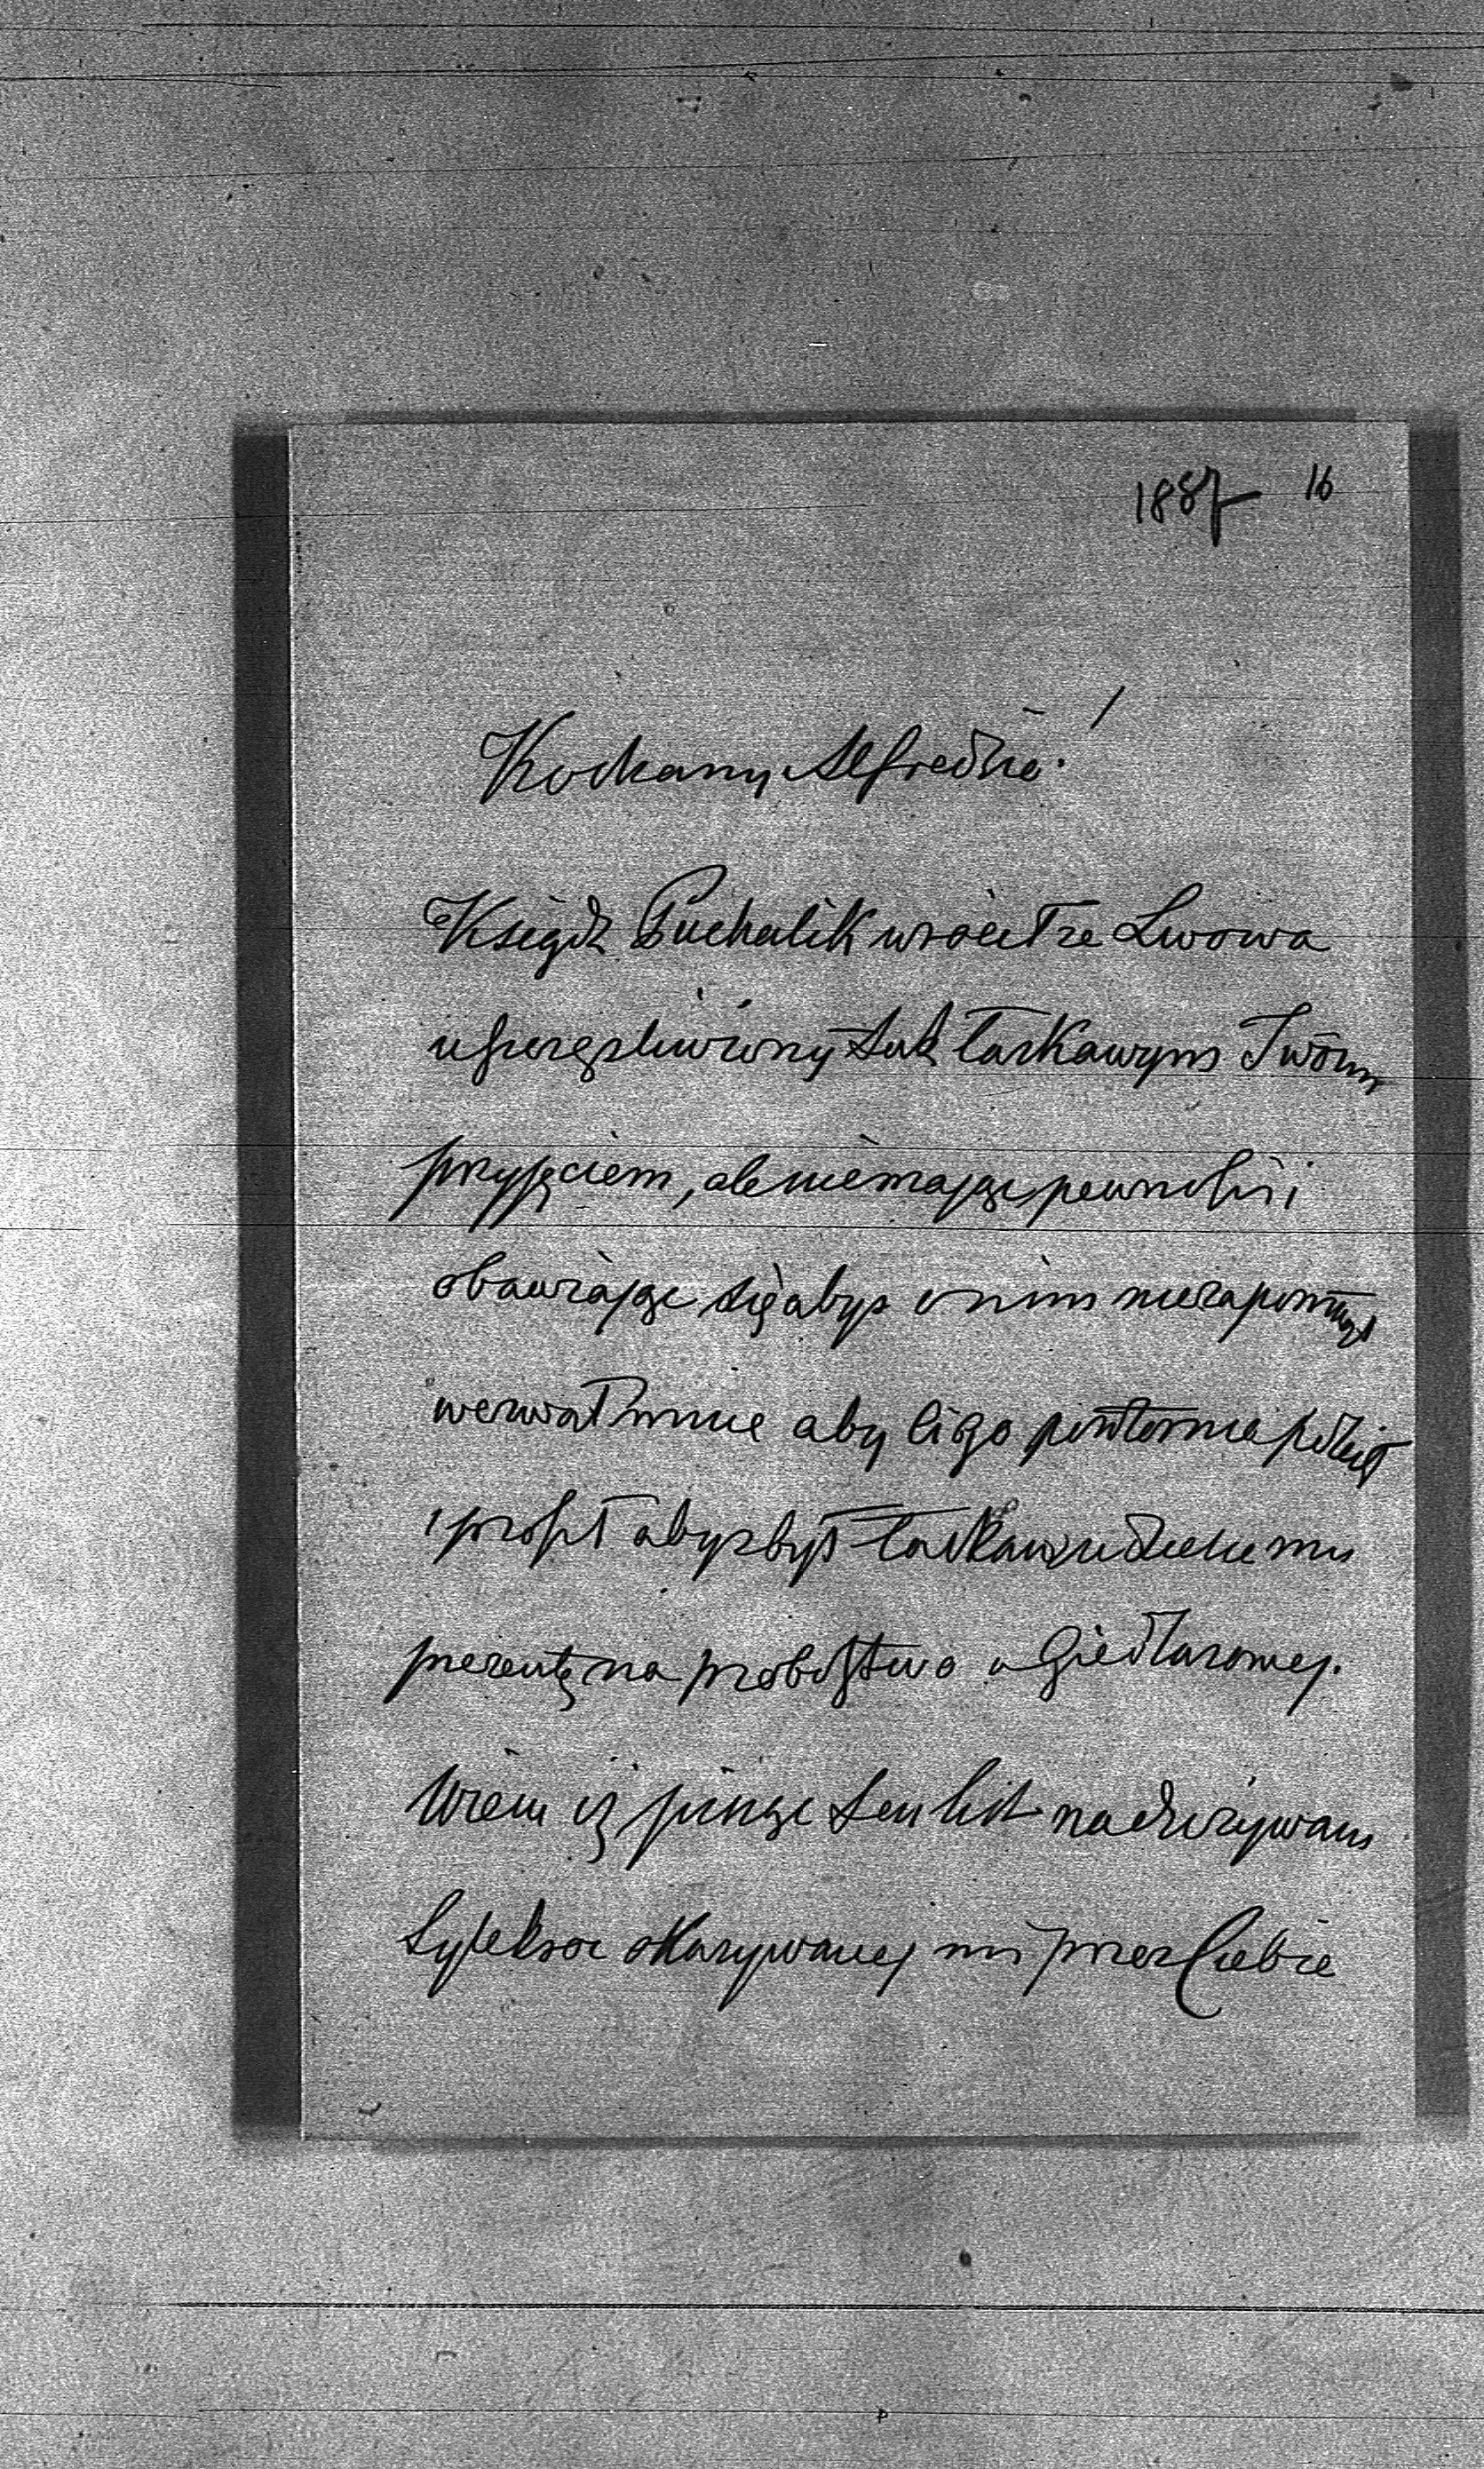 1887 16
Kochany Alfredzie!
Ksiądz Puchalik wrócił ze Lwowa
uszczęśliwiony tak łaskawym Twoim
przyjęciem, ale niemając pewności i
obawiając się abyś o nim niezapomniał
wezwał mnie abym Cię o
i prosił abyś był łaskaw udzielić mu
prezentę na probostwo w Giedlarowej.
Wiem iż pisząc ten list nadużywam
tylekroć okazywanej mi przez Ciebie